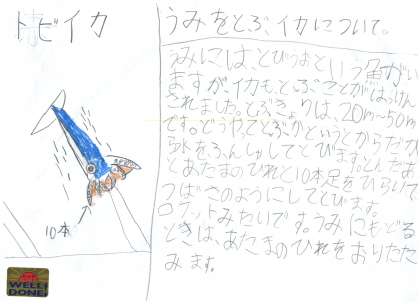 トビイカ
10本
WELL
DONE
うみをとぶ、イカについて。
うみには、とびうおという魚がい
ますが、イカも、とぶことがはっけん
されました。とぶきょりは、20m〜50m
です。どうやってとぶかというとからだか
ら水をふんしゃしてとびます。とんだあ
とあたまのひれと10本足をひらいて
つばさのようにしてとびます。
ロケットみたいです。うみにもどる
ときは、あたまのひれをおりたた
みます。